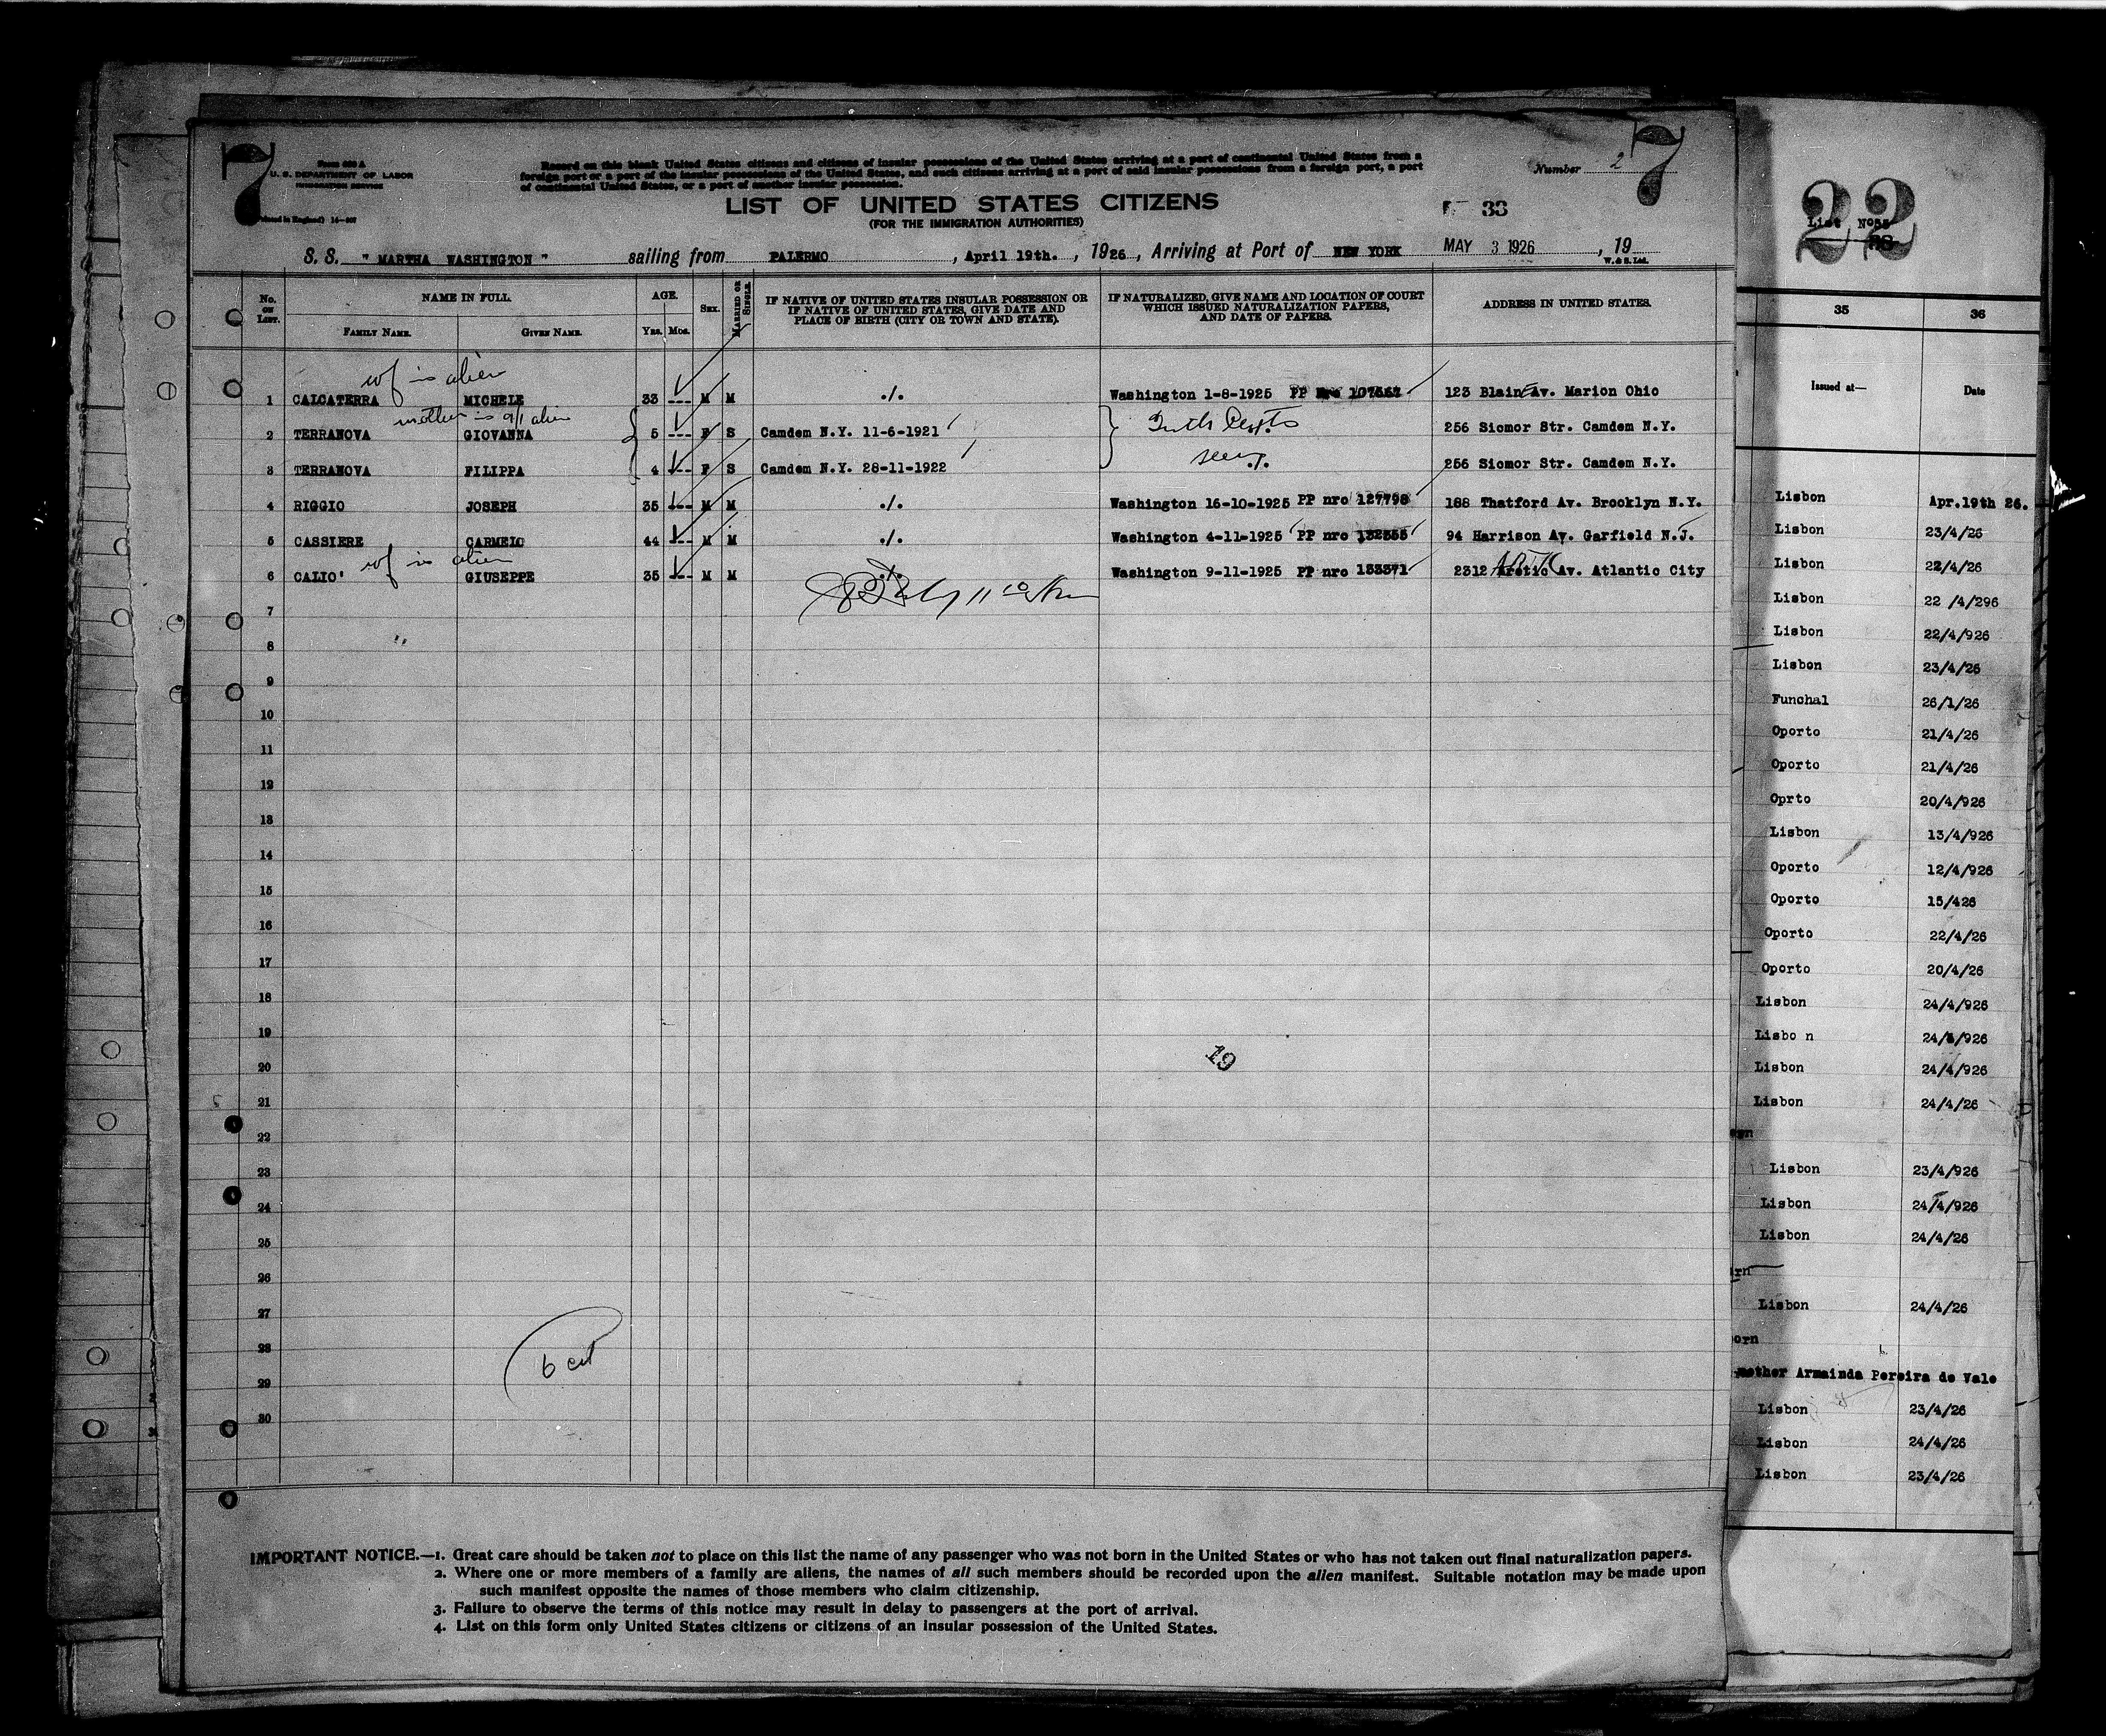 7
7
Form 630 A
U. S. DEPARTMENT OF LABOR
IMMIGRATION SERVICE
(Printed in England) 14—
Record on this blank United States citizens and citizens of insular possessions of the United States arriving at a port of continental United States from a
foreign port or a port of the insular possessions of the United States, and such citizens arriving at a port of said insular possessions from a foreign port, a port
of continental United States, or a port of another insular possession.
Number 2
LIST OF UNITED STATES CITIZENS
(FOR THE IMMIGRATION AUTHORITIES)
33
S. S. " MARTHA WASHINGTON " sailing from PALERMO , April 19th. , 1926 , Arriving at Port of NEW YORK MAY 3 1926 , 19
W. & S. Ltd.
No. ON LIST. NAME IN FULL. AGE. SEX. MARRIED OR SINGLE. IF NATIVE OF UNITED STATES INSULAR POSSESSION OR IF NATIVE OF UNITED STATES, GIVE DATE AND PLACE OF BIRTH (CITY OR TOWN AND STATE). IF NATURALIZED, GIVE NAME AND LOCATION OF COURT WHICH ISSUED NATURALIZATION PAPERS, AND DATE OF PAPERS. ADDRESS IN UNITED STATES.
FAMILY NAME. GIVEN NAME. Yrs. Mos.
wf is alien
1 CALCATERRA MICHELE 33 --- M M ./. Washington 1-8-1925 PP nro 123 Blaine Av. Marion Ohio
mother is alien
2 TERRANOVA GIOVANNA 5 --- F S Camdem N.Y. 11-6-1921 256 Siomor Str. Camdem N.Y.
3 TERRANOVA FILIPPA 4 --- F S Camdem N.Y. 28-11-1922 seen ./. 256 Siomor Str. Camdem N.Y.
4 RIGGIO JOSEPH 35 --- M M ./. Washington 16-10-1925 PP nro 127798 188 Thatford Av. Brooklyn N.Y.
5 CASSIERE CARMELO 44 --- M M ./. Washington 4-11-1925 PP nro 132355 94 Harrison Av. Garfield N.J.
wf is alien
6 CALIO' GIUSEPPE 35 --- M M ./. Washington 9-11-1925 PP nro 133371 2312 Arctic Av. Atlantic City
7
8
9
10
11
12
13
14
15
16
17
18
19
19
20
21
22
23
24
25
26
27
28
6 cit
29
30
IMPORTANT NOTICE.—1. Great care should be taken not to place on this list the name of any passenger who was not born in the United States or who has not taken out final naturalization papers.
2. Where one or more members of a family are aliens, the names of all such members should be recorded upon the alien manifest. Suitable notation may be made upon
such manifest opposite the names of those members who claim citizenship.
3. Failure to observe the terms of this notice may result in delay to passengers at the port of arrival.
4. List on this form only United States citizens or citizens of an insular possession of the United States.
22
List Nº
35 36
Issued at— Date
Lisbon Apr.19th 26.
Lisbon 23/4/26
Lisbon 22/4/26
Lisbon 22 /4/296
Lisbon 22/4/926
Lisbon 23/4/26
Funchal 26/1/26
Oporto 21/4/26
Oporto 21/4/26
Oprto 20/4/926
Lisbon 13/4/926
Oporto 12/4/926
Oporto 15/426
Oporto 22/4/26
Oporto 20/4/26
Lisbon 24/4/926
Lisbo n 24/4/926
Lisbon 24/4/926
Lisbon 24/4/26
Lisbon 23/4/926
Lisbon 24/4/926
Lisbon 24/4/26
Lisbon 24/4/26
orn
mother Armainda Pereira de Vale
Lisbon 23/4/26
Lisbon 24/4/26
Lisbon 23/4/26